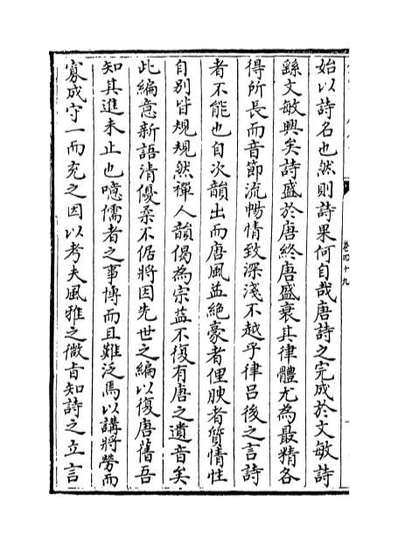 始以詩名也然則詩果何自哉唐詩之完成於文敏詩
繇文敏興矣詩盛於唐終唐盛衰其律體尤為最精各
得所長而音節流暢情致深淺不越乎律呂後之言詩
者不能也自次韻出而唐風益絶豪者俚腴者質情性
自別皆規規然禪人韻偈為宗益不復有唐之遺音矣
此編意新語清優柔不倨將因先世之編以復唐舊吾
知其進未止也噫儒者之事博而且難泛焉以講將勞而
寡成守一而充之因以考夫風雅之微旨知詩之立言
卷四十九